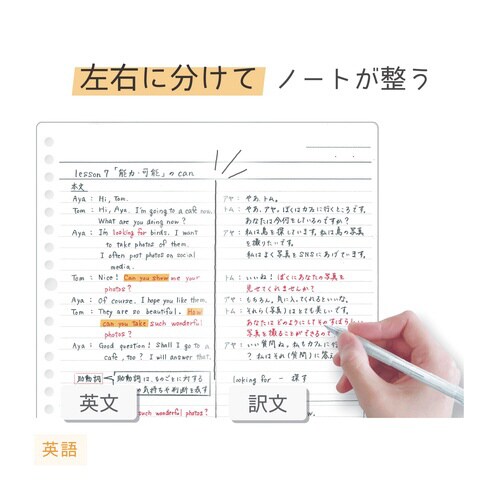 左右に分けて ノートが整う
lesson7「能力・可能」のcan
本文
Aya : Hi, Tom.
Tom : Hi, Aya. I'm going to a cafe now.
What are you doing now?
Aya : I'm looking for birds. I want
to take photos of them.
I often post photos on social
media.
Tom : Nice! Can you show me your
photos?
Aya : Of course. I hope you like them.
Tom : They are so beautiful. How
can you take such wonderful
photos?
Aya : Good question! Shall I go to a
cafe, too? I will answer that.
助動詞 助動詞は、ものごとに対する
気持ちや判断を表す
such wonderful photos?
アヤ : やあ、トム。
トム : やあ、アヤ。ぼくはカフェに行くところです。
あなたは今何をしているのですか?
アヤ : 私は鳥を探しています。私は鳥の写真
を撮りたいです。
私はよく写真をSNSにあげています。
トム : いいね! ぼくにあなたの写真を
見せてくれませんか?
アヤ : もちろん。気に入ってくれるといいな。
トム : それら(写真)はとても美しいです。
あなたはどのようにしてそのすばらしい
写真を撮ることができるので
アヤ : いい質問ね。私もカフェに行
? 私はそれ(質問)に答え
looking for ー 探す
英文
訳文
英語